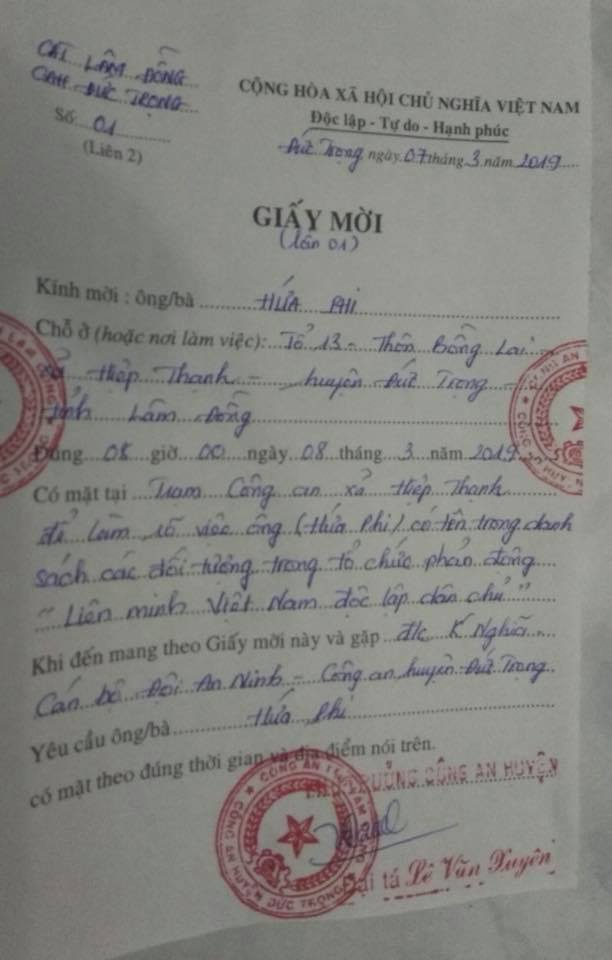 CAT LÂM ĐỒNG
CAH ĐỨC TRỌNG
Số 01
(Liên 2)
CỘNG HÒA XÃ HỘI CHỦ NGHĨA VIỆT NAM
Độc lập - Tự do - Hạnh phúc
Đức Trọng ngày 07 tháng 3 năm 2019
GIẤY MỜI
(lần 01)
Kính mời : ông/bà HỨA PHI
Chỗ ở (hoặc nơi làm việc): Tổ 13 - Thôn Bồng Lai -
xã Hiệp Thạnh - huyện Đức Trọng -
tỉnh Lâm Đồng
Đúng 08 giờ 00 ngày 08 tháng 3 năm 2019
Có mặt tại Trạm Công an xã Hiệp Thạnh
để làm rõ việc ông (Hứa Phi) có tên trong danh
sách các đối tượng trong tổ chức phản động
"Liên minh Việt Nam độc lập dân chủ"
Khi đến mang theo Giấy mời này và gặp đ/c K Nghĩa
Cán bộ Đội An Ninh - Công an huyện Đức Trọng
Yêu cầu ông/bà Hứa Phi
có mặt theo đúng thời gian và địa điểm nói trên.
TRƯỞNG CÔNG AN HUYỆN
Đại tá Lê Văn Xuyên